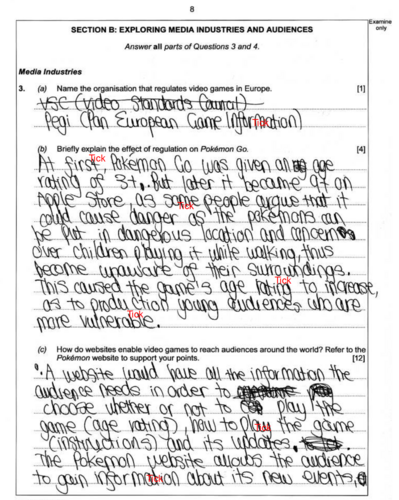 8
Examiner
only
SECTION B: EXPLORING MEDIA INDUSTRIES AND AUDIENCES
Answer all parts of Questions 3 and 4.
Media Industries
3. (a) Name the organisation that regulates video games in Europe. [1]
VSC (Video Standards Council)
Pegi (Pan European Game Information)
Tick
(b) Briefly explain the effect of regulation on Pokémon Go. [4]
At first, Pokémon Go was given an age
Tick
rating of 3+. But later it became 9+ on
Apple Store, as some people argue that it
Tick
could cause danger as the pokémons can
be put in dangerous location and concerns
over children playing it while walking, thus
become unaware of their surroundings.
This caused the game's age rating to increase,
Tick
as to production young audiences who are
more vulnerable.
Tick
(c) How do websites enable video games to reach audiences around the world? Refer to the
Pokémon website to support your points. [12]
A website would have all the information the
audience needs in order to
choose whether or not to play the
game (age rating), how to play the game
Tick
(instructions) and its updates.
The Pokemon website allows the audience
to gain information about its new events,
Tick